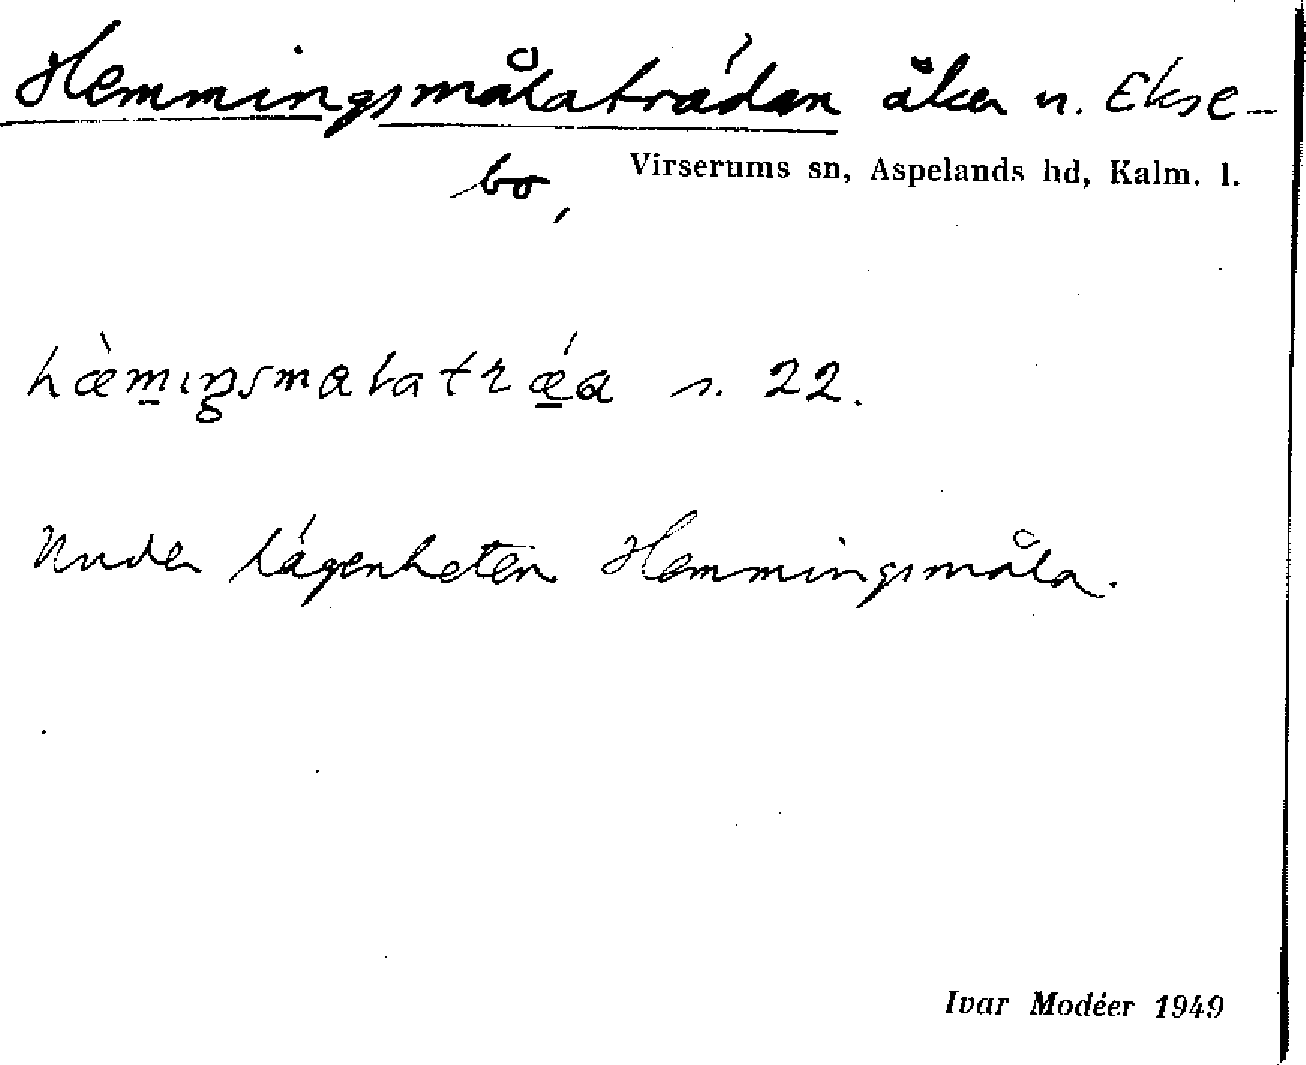 Hemmingsmålaträdan åker n. Ekse-
bo,
Virserums sn, Aspelands hd, Kalm. l.
hæ̀mıŋsmalatrǽa s. 22.
Under lägenheten Hemmingsmåla.
Ivar Modéer 1949